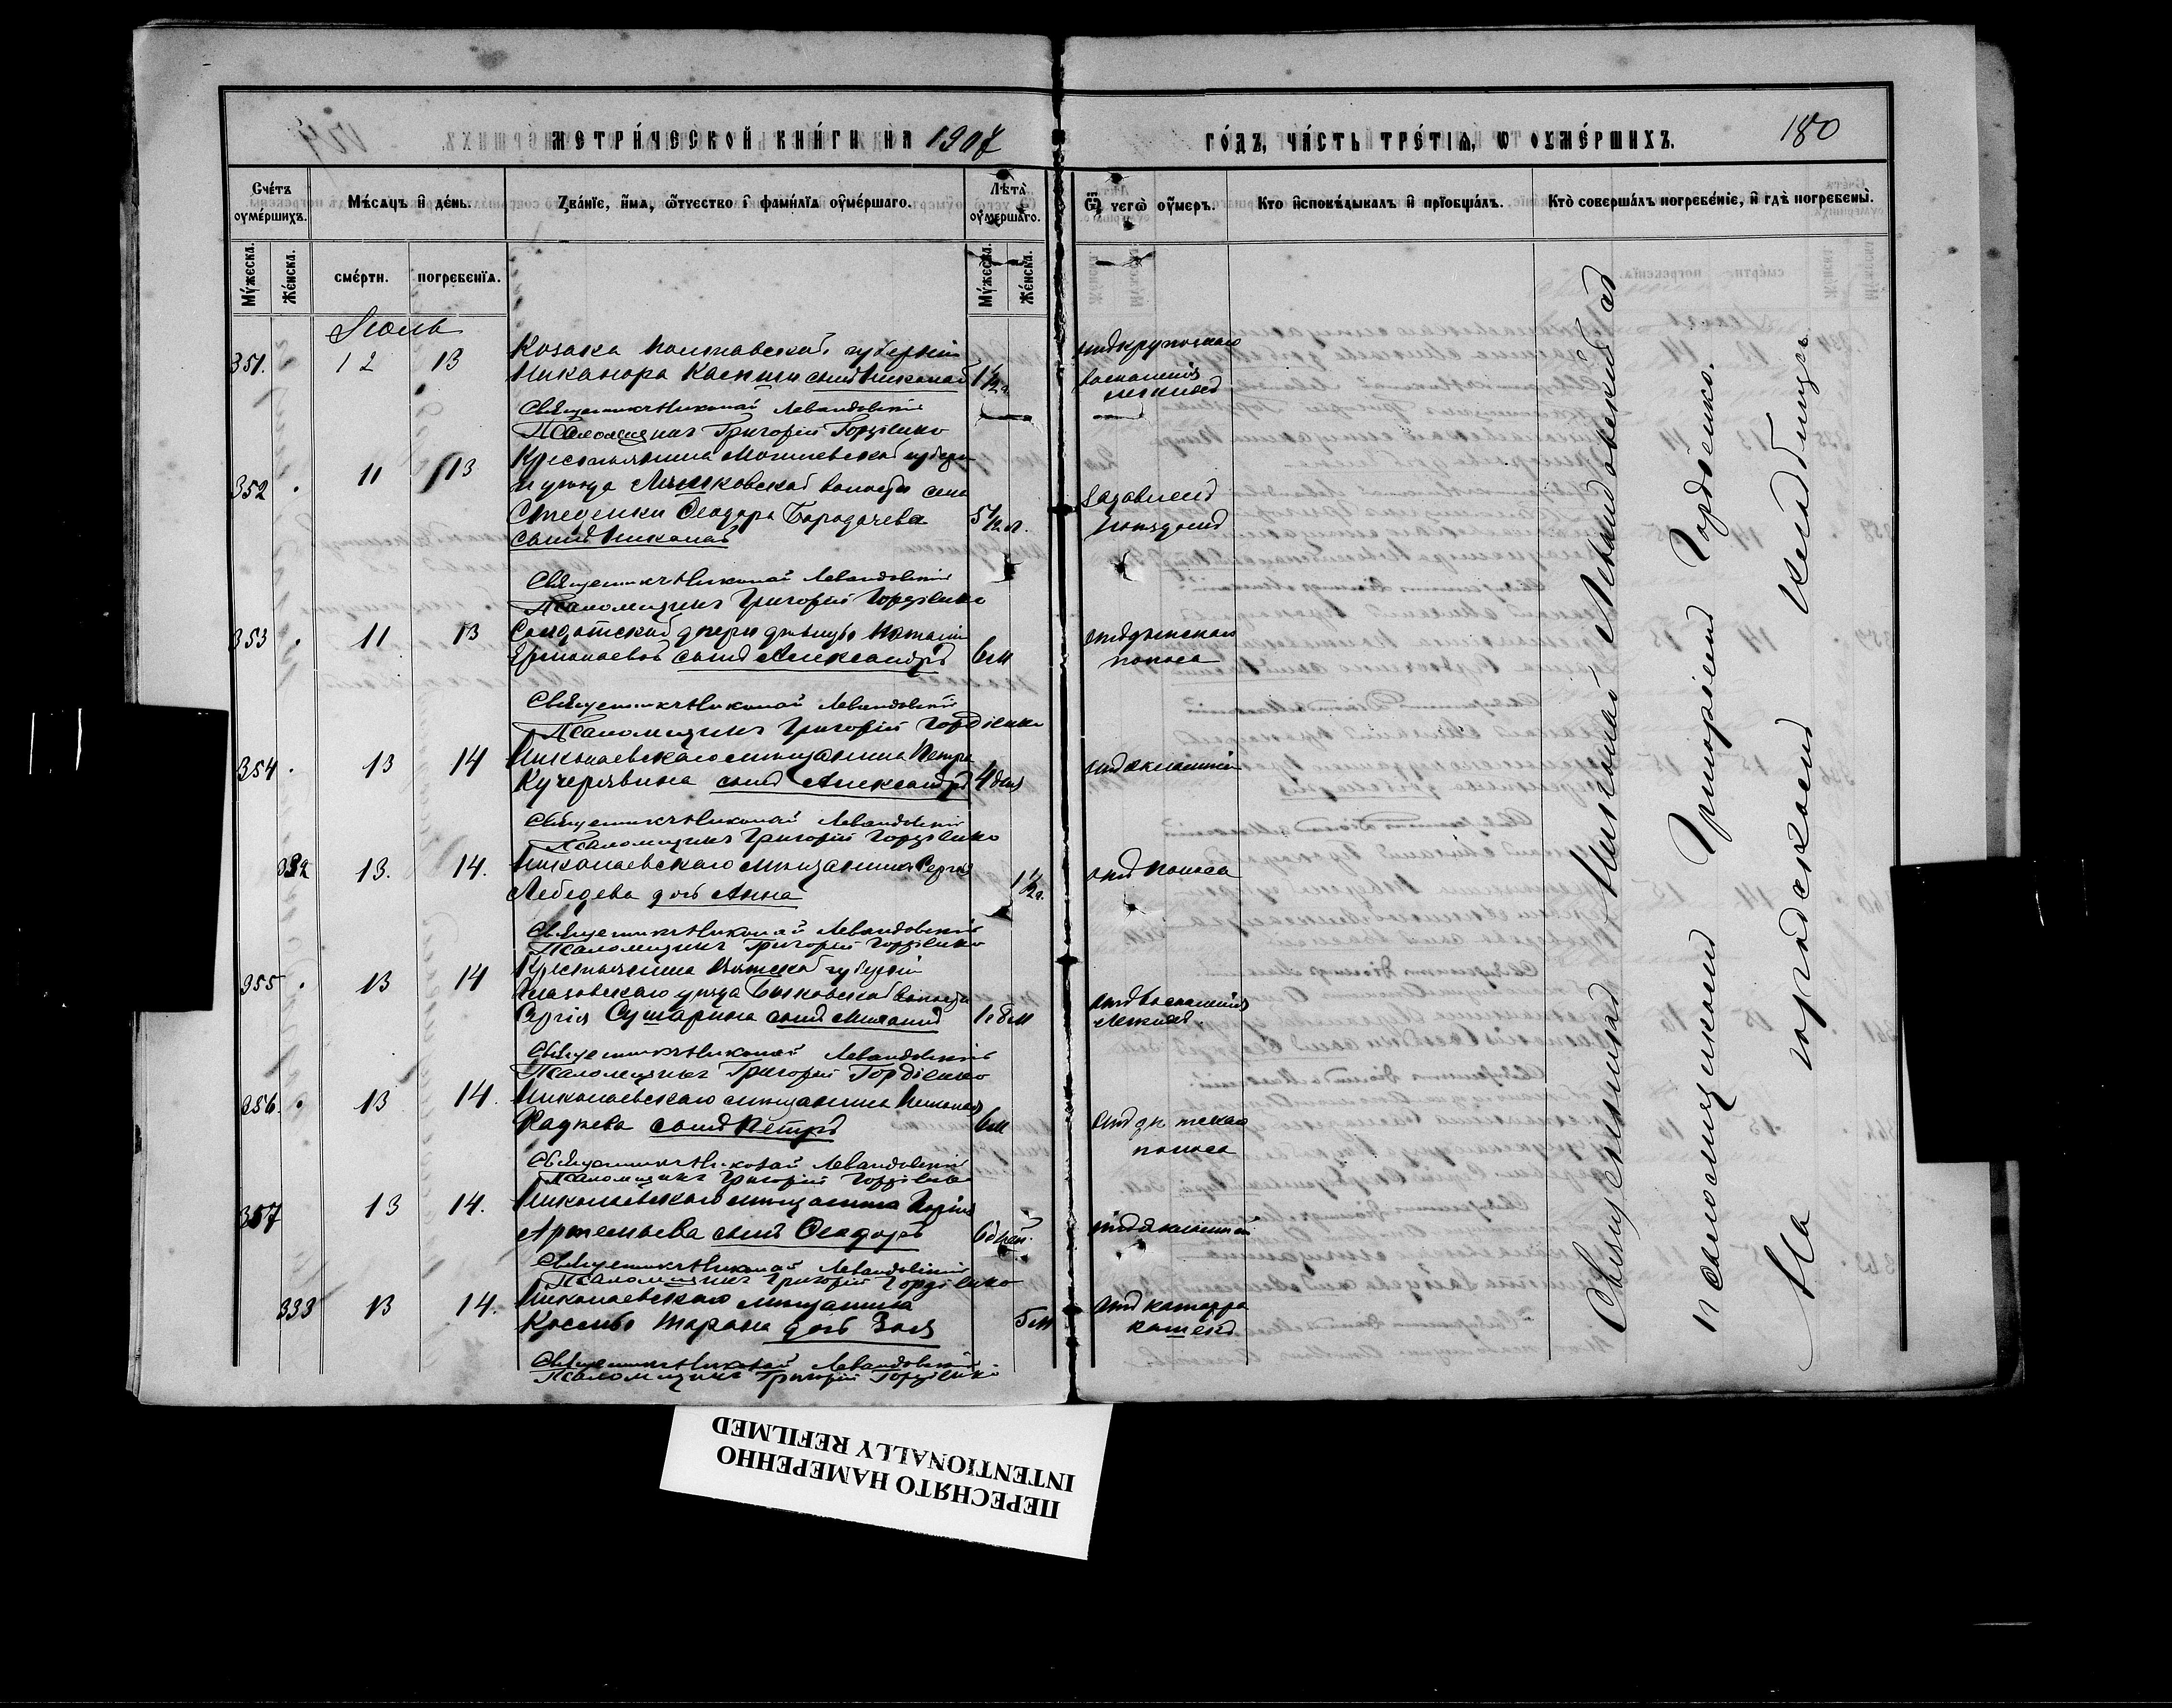 МЕТРИ́ЧЕСКОЙ КНИ́ГИ НА 1907
ГО́ДЪ, ЧА́СТЬ ТРЕ́ТІѦ, Ѡ ОУМЕ́РШИХЪ.
180
Сче́тъ оуме́ршихъ.
Мѣ́сѧцъ и҆ де́нь.
Зва́нїе, и҆́мѧ, ѻ҆́тчество і҆ фами́лїѧ оу҆ме́ршагѡ.
Лѣта̀ оу҆ме́ршагѡ.
Ѿ чегѡ̀ оу҆́меръ.
Кто̀ и҆сповѣ́дывалъ и҆ прїѡбща́лъ.
Кто̀ соверша́лъ погребе́нїе, и҆ гдѣ̀ погребены̀.
Мꙋ́жеска.
Же́нска.
сме́рти.
погребе́нїѧ.
Мꙋ́жеска.
Же́нска.
Іюль
351. 12 13
Козака Полтавской губерніи
Никанора сынъ Николай 1 1/2 г.
отъ крупознаго
воспаленія
легкихъ
Священникъ Николай Левандовскій
Псаломщикъ Григорій Гордіенко
352 11 13
Крестьянина Могилевской губерн.
и уѣзда волости села
Ѳеодора Бородачева 5 1/2 л.
сынъ Николай
Священникъ Николай Левандовскій
Псаломщикъ Григорій Гордіенко
353 11 13
Солдатской дочери дѣвицы Наталіи
Ермолаевой сынъ Александръ 6 м
отъ дѣтскаго
поноса
Священникъ Николай Левандовскій
Псаломщикъ Григорій Гордіенко
354 13 14
Николаевскаго мѣщанина Петра
Кучерявина сынъ Александръ 4 дня
отъ эклампсіи
Священникъ Николай Левандовскій
Псаломщикъ Григорій Гордіенко
332 13. 14.
Николаевскаго мѣщанина Сергія
Лебедева дочь Анна 1 1/2 г.
отъ поноса
Священникъ Николай Левандовскій
Псаломщикъ Григорій Гордіенко
355 13 14
Крестьянина Вятской губерніи
Глазовскаго уѣзда волости
Сергія Сушарина сынъ Михаилъ 1 г 8 м
отъ воспаленія
легкихъ
Священникъ Николай Левандовскій
Псаломщикъ Григорій Гордіенко
356. 13 14.
Николаевскаго мѣщанина Николая
Кадчева сынъ Петръ 6 м
отъ дѣтскаго
поноса
Священникъ Николай Левандовскій
Псаломщикъ Григорій Гордіенко
357 13 14.
Николаевскаго мѣщанина
Артемьева сынъ Ѳеодоръ 6 дней.
отъ эклампсіи
Священникъ Николай Левандовскій
Псаломщикъ Григорій Гордіенко
333 13 14.
Николаевскаго мѣщанина
Космы Тарана дочь Зоя 5 м
отъ катарра
кишекъ
Священникъ Николай Левандовскій
Псаломщикъ Григорій Гордіенко
Священникъ Николай Левандовскій съ
псаломщикомъ Григоріемъ Гордіенко.
На городскомъ кладбищѣ.
ПЕРЕСНЯТО НАМЕРЕННО
INTENTIONALLY REFILMED